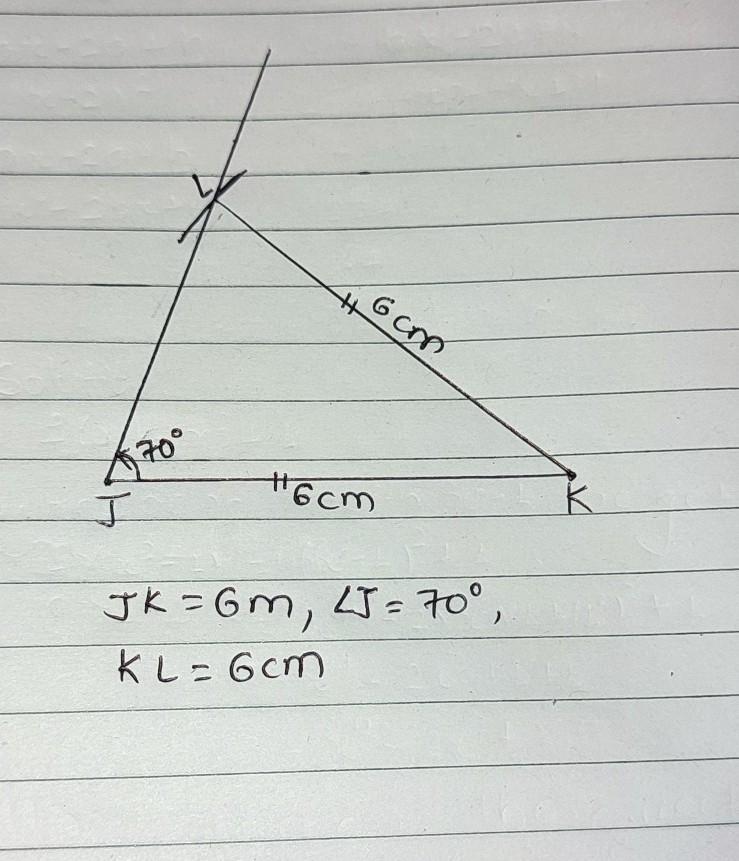 L
6cm
70°
6cm
J
K
JK = 6m, ∠J = 70°,
KL = 6cm